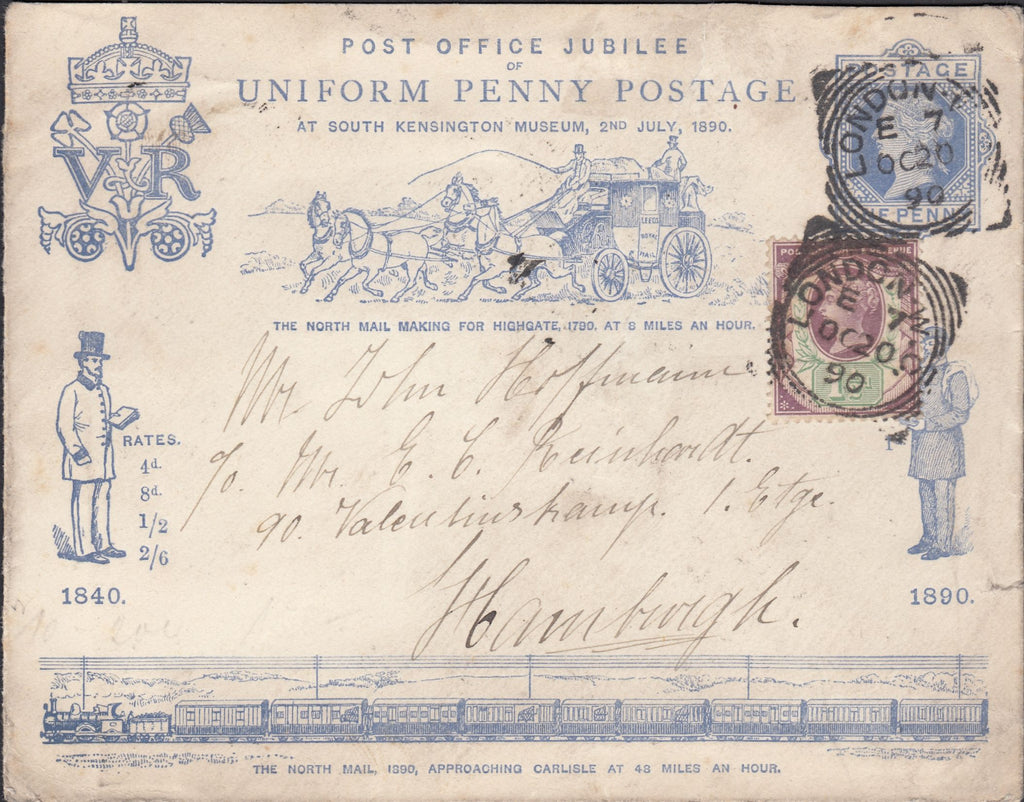 POST OFFICE JUBILEE
OF
UNIFORM PENNY POSTAGE
AT SOUTH KENSINGTON MUSEUM, 2ND JULY, 1890.
VR
POSTAGE
LONDON
E 7
OC20
90
NE PENN
LEEDS
ROYAL
MAIL
THE NORTH MAIL MAKING FOR HIGHGATE, 1790, AT 8 MILES AN HOUR.
LONDON.W.C
E 7
OC20
90
1½d
Mr John Hoffmann
c/o. Mr. E. C. Reinhardt.
90. Valentinskamp. 1. Etge.
Hamburgh.
RATES.
4d.
8d.
1/2
2/6
1840.
1890.
THE NORTH MAIL, 1890, APPROACHING CARLISLE AT 48 MILES AN HOUR.